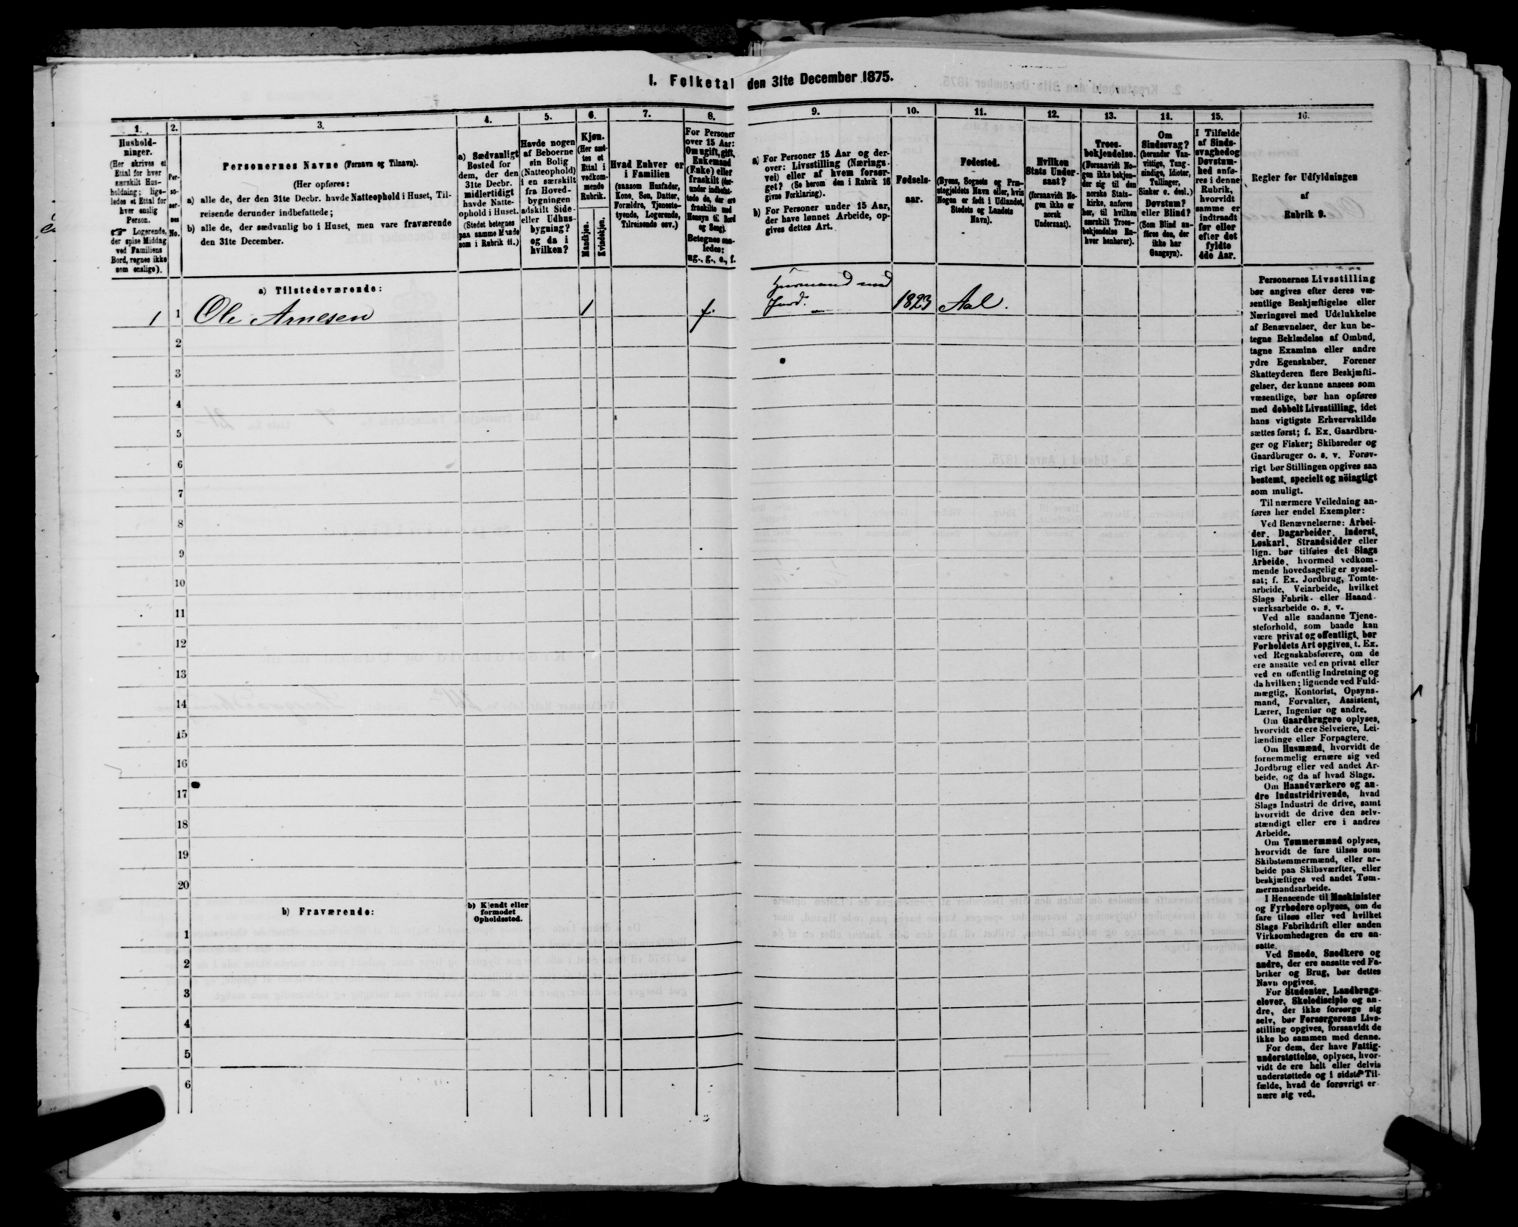 1. Folketal den 31te December 1875.
1.
Hushold-
ninger.
(Her skrives et
Ettal for hver
særskilt Hus-
holdning; lige-
ledes et Ettal for
hver enslig
Person.
☞ Logerende,
der spise Middag
ved Familiens
Bord, regnes ikke
som enslige).
2.
Per-
so-
ner-
nes
No.
3.
Personernes Navne (Fornavn og Tilnavn).
(Her opføres:
a) alle de, der den 31te Decbr. havde Natteophold i Huset, Til-
reisende derunder indbefattede;
b) alle de, der sædvanlig bo i Huset, men vare fraværende
den 31te December.
4.
a) Sædvanligt
Bosted for
dem, der den
31te Decbr.
midlertidigt
havde Natte-
ophold i Huset.
(Stedet betegnes
paa samme Maade
som i Rubrik 11.)
5.
Havde nogen
af Beboerne
sin Bolig
(Natteophold)
i en særskilt
fra Hoved-
bygningen
adskilt Side-
eller Udhus-
bygning?
og da i
hvilken?
6.
Kjøn.
(Her sæt-
tes et
Ettal i
vedkom-
mende
Rubrik.
Mandkjøn.
Kvindekjøn.
7.
Hvad Enhver er
i Familien
(saasom Husfader,
Kone, Søn, Datter,
Forældre, Tjeneste-
tyende, Logerende,
Tilreisende osv.)
8.
For Personer
over 15 Aar:
Om ugift, gift,
Enkemand
(Enke) eller
fraskilt
Betegnes saa-
ledes:
ug., g., e., f.
9.
a) For Personer 15 Aar og der-
over: Livsstilling (Nærings-
vei) eller af hvem forsør-
get? (Se herom den i Rubrik 16
givne Forklaring).
b) For Personer under 15 Aar,
der have lønnet Arbeide, op-
gives dettes Art.
10.
Fødsels-
aar.
11.
Fødested.
(Byens, Sognets og Præ-
stegjeldets Navn eller, hvis
Nogen er født i Udlandet,
Stedets og Landets
Navn).
12.
Hvilken
Stats Under-
saat?
(forsaavidt No-
gen ikke er
norsk
Undersaat).
13.
Troes-
bekjendelse.
(Forsaavidt No-
gen ikke bekjen-
der sig til den
norske Stats-
kirke, anføres
her, til hvilken
særskilt Troes-
bekjendelse En-
hver henhører).
14.
Om
Sindssvag?
(herunder Van-
vittige, Tung-
sindige, Idioter,
Tullinger,
Sinker o. desl.)
Døvstum?
eller Blind?
(Som Blind an-
føres den, der
ikke har
Gangsyn).
15.
I Tilfælde
af Sinds-
svaghed og
Døvstum-
hed anfø-
res i denne
Rubrik,
hvorvidt
samme er
indtraadt
før eller
efter det
fyldte
4de Aar.
16.
Regler for Udfyldningen
af
Rubrik 9.
a) Tilstedeværende:
1 1 Ole Arnesen 1 f. Husmand med
Jord. 1823 Aal.
2
3
4
5
6
7
8
9
10
11
12
13
14
15
16
17
18
19
20
b) Fraværende:
b) Kjendt eller
formodet
Opholdssted.
1
2
3
4
5
6
Personernes Livsstilling
bør angives efter deres væ-
sentlige Beskjæftigelse eller
Næringsvei med Udelukkelse
af Benævnelser, der kun be-
tegne Beklædelse af Ombud,
tagne Examina eller andre
ydre Egenskaber. Forener
Skatteyderen flere Beskjæfti-
gelser, der kunne ansees som
væsentlige, bør han opføres
med dobbelt Livsstilling, idet
hans vigtigste Erhvervskilde
sættes først; f. Ex. Gaardbru-
ger og Fisker; Skibsreder og
Gaardbruger o. s. v. Forøv-
rigt bør Stillingen opgives saa
bestemt, specielt og nöiagtigt
som muligt.
Til nærmere Veiledning an-
føres her endel Exempler:
Ved Benævnelserne: Arbei-
der, Dagarbeider, Inderst,
Løskarl, Strandsidder eller
lign. bør tilføies det Slags
Arbeide, hvormed vedkom-
mende hovedsagelig er syssel-
sat; f. Ex. Jordbrug, Tomte-
arbeide, Veiarbeide, hvilket
Slags Fabrik- eller Haand-
værksarbeide o. s. v.
Ved alle saadanne Tjene-
steforhold, som baade kan
være privat og offentligt, bør
Forholdets Art opgives, t. Ex.
ved Regnskabsførere, om de
ere ansatte ved en privat eller
ved en offentlig Indretning og
da hvilken; lignende ved Fuld-
mægtig, Kontorist, Opsyns-
mand, Forvalter, Assistent,
Lærer, Ingeniør og andre.
Om Gaardbrugere oplyses,
hvorvidt de ere Selveiere, Lei-
lændinge eller Forpagtere.
Om Husmænd, hvorvidt de
fornemmelig ernære sig ved
Jordbrug eller ved andet Ar-
beide, og da af hvad Slags.
Om Haandværkere og an-
dre Industridrivende, hvad
Slags Industri de drive, samt
hvorvidt de drive den selv-
stændigt eller ere i andres
Arbeide.
Om Tømmermænd oplyses,
hvorvidt de fare tilsøs som
Skibstømmermænd, eller ar-
beide paa Skibsværfter, eller
beskjæftiges ved andet Tøm-
mermandsarbeide.
I Henseende til Maskinister
og Fyrbødere oplyses, om de
fare tilsøs eller ved hvilket
Slags Fabrikdrift eller anden
Virksomhedsgren de ere an-
satte.
Ved Smede, Snedkere og
andre, der ere ansatte ved Fa-
briker og Brug, bør dettes
Navn opgives.
For Studenter, Landbrugs-
elever, Skoledisciple og an-
dre, der ikke forsørge sig
selv, bør Forsørgerens Livs-
stilling opgives, forsaavidt de
ikke bo sammen med denne.
For dem, der have Fattig-
understøttelse, oplyses, hvor-
vidt de ere helt eller delvis
understøttede og i sidste Til-
fælde, hvad de forøvrigt er-
nære sig ved.